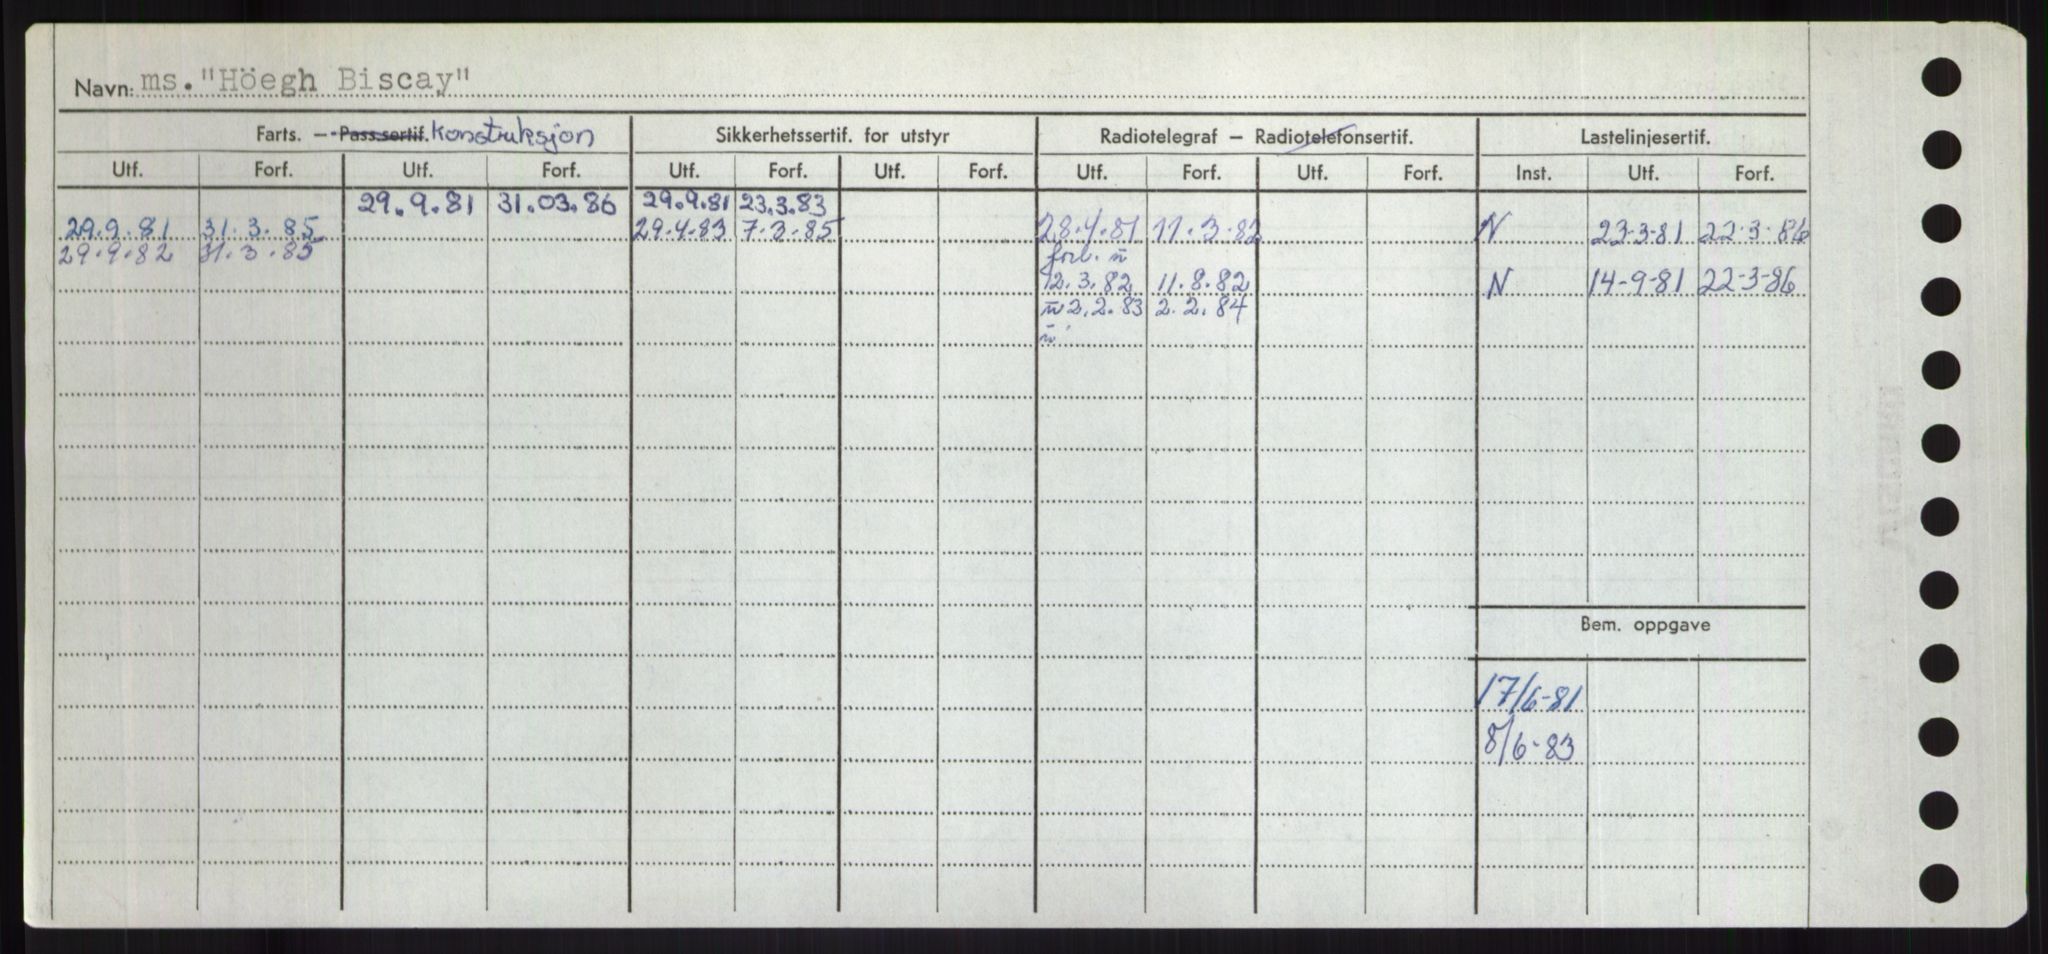 Navn: ms. "Höegh Biscay"
Farts. – Pass.sertif. Konstruksjon Sikkerhetssertif. for utstyr Radiotelegraf – Radiotelefonsertif. Lastelinjesertif.
Utf. Forf. Utf. Forf. Utf. Forf. Utf. Forf. Utf. Forf. Utf. Forf. Inst. Utf. Forf.
29.9.81 31.03.86 29.9.81 23.3.83
29.9.81 31.3.85 29.4.83 7.3.85 28.4.81 11.3.82 N 23-3-81 22-3-86
29.9.82 31.3.85 forl. n
12.3.82 11.8.82 N 14-9-81 22-3-86
n 2.2.83 2.2.84
n
Bem. oppgave
17/6-81
8/6-83